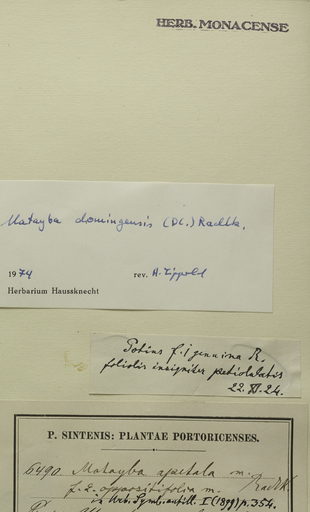 HERB. MONACENSE
Matayba domingensis (DC.) Radlk.
1974 rev. H. Lippold
Herbarium Haussknecht
Potius f. 1 genuina R.
foliolis insigniter petiolulatis
22. XI. 24.
P. SINTENIS: PLANTAE PORTORICENSES.
6490 Matayba apetala m. Radlk.
f. 2. oppositifolia m.
in Urb. Symb. antill. I (1899) p. 354.